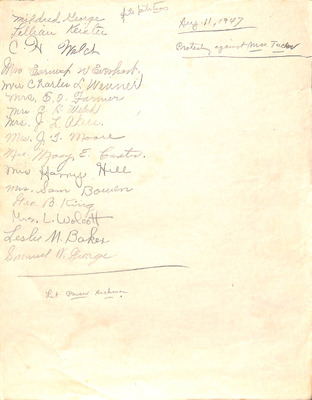 Mildred George
Lillian Keister
C. H. Welch
Aug. 11, 1947
Protesting against Mrs. Tucker
Mrs Earnest W Earhart
Mrs Charles L Wanner
Mrs. E. D. Farmer
Mrs E R Webb
Mrs. J L Akers
Mrs. J. T. Moore
Mrs. Mary E. Custer.
Mrs Harry Hill
Mrs. Sam Bowen
Geo B King
Mrs. L. Wolcott
Leslie M. Baker
Samuel W. George